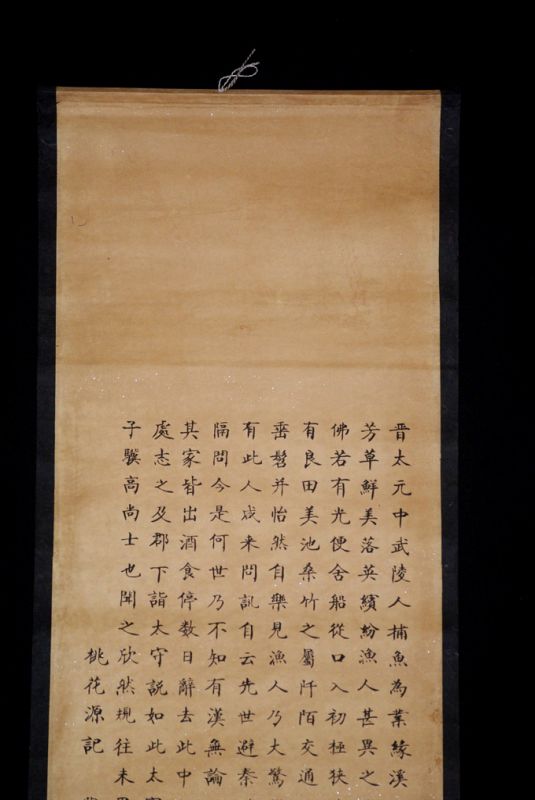 晋太元中武陵人捕魚為業緣溪
芳草鮮美落英繽紛漁人甚異之
佛若有光便舍船從口入初極狹
有良田美池桑竹之屬阡陌交通
垂髫并怡然自樂見漁人乃大驚
有此人咸来問訊自云先世避秦
隔問今是何世乃不知有漢無論
其家皆出酒食停数日辭去此中
處志之及郡下詣太守説如此太
子驥高尚士也聞之欣然規往未
桃花源記